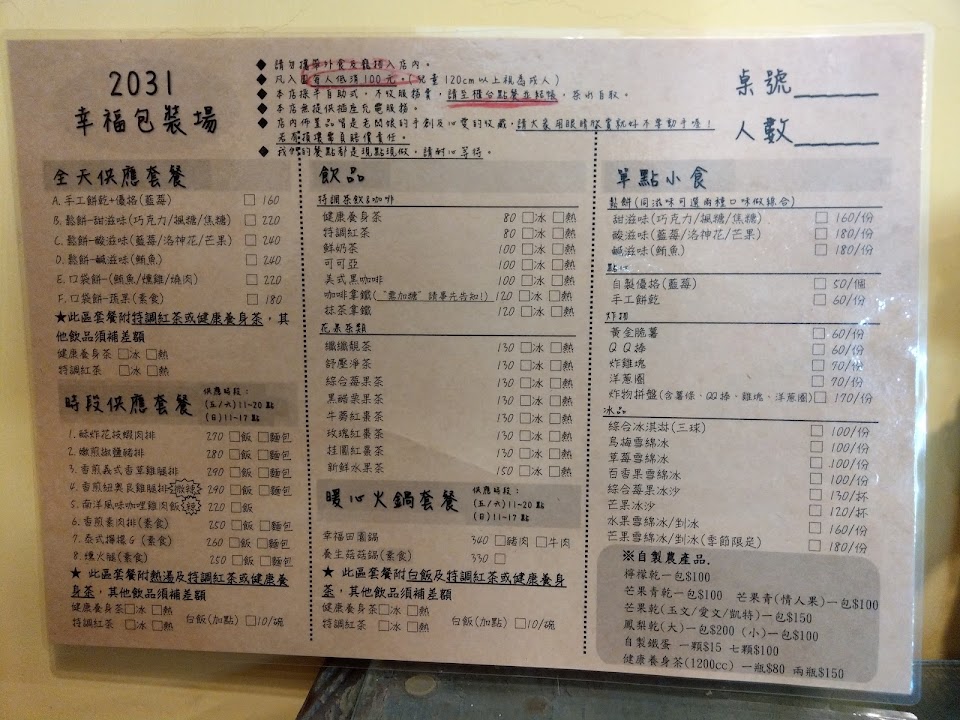 2031
幸福包裝場
◆ 請勿攜帶外食及寵物入店內。
◆ 凡入店每人低消100元。(兒童120cm以上視為成人)
◆ 本店採半自助式,不收服務費,請至櫃台點餐並結帳,茶水自取。
◆ 本店無提供插座充電服務。
◆ 店內佈置品皆是老闆娘的手創及心愛的收藏,請大家用眼睛欣賞就好不要動手喔!
若有損壞需負賠償責任。
◆ 我們的餐點都是現點現做,請耐心等待。
桌號
人數
全天供應套餐
A.手工餅乾+優格(藍莓) □ 160
B.鬆餅-甜滋味(巧克力/楓糖/焦糖) □ 220
C.鬆餅-酸滋味(藍莓/洛神花/芒果) □ 240
D.鬆餅-鹹滋味(鮪魚) □ 240
E.口袋餅-(鮪魚/燻雞/燒肉) □ 220
F.口袋餅-蔬果(素食) □ 180
★此區套餐附特調紅茶或健康養身茶,其
他飲品須補差額
健康養身茶 □冰 □熱
特調紅茶 □冰 □熱
時段供應套餐
供應時段:
(五/六)11~20點
(日)11~17點
1.酥炸花枝蝦肉排 270 □飯 □麵包
2.嫩煎椒鹽豬排 280 □飯 □麵包
3.香煎義式香草雞腿排 290 □飯 □麵包
4.香煎紐奧良雞腿排 微辣 290 □飯 □麵包
5.南洋風味咖哩雞肉飯 辣 220 □飯
6.香煎素肉排(素食) 250 □飯 □麵包
7.泰式檸檬G(素食) 260 □飯 □麵包
8.燻火腿(素食) 250 □飯 □麵包
★ 此區套餐附熱湯及特調紅茶或健康養
身茶,其他飲品須補差額
健康養身茶 □冰 □熱
特調紅茶 □冰 □熱 白飯(加點) □10/碗
飲品
特調茶飲&咖啡
健康養身茶 80 □冰 □熱
特調紅茶 80 □冰 □熱
鮮奶茶 100 □冰 □熱
可可亞 100 □冰 □熱
美式黑咖啡 100 □冰 □熱
咖啡拿鐵(“需加糖”請事先告知!) 120 □冰 □熱
抹茶拿鐵 120 □冰 □熱
花果茶類
纖纖靚茶 130 □冰 □熱
舒壓淨茶 130 □冰 □熱
綜合莓果茶 130 □冰 □熱
黑醋栗果茶 130 □冰 □熱
牛蒡紅棗茶 130 □冰 □熱
玫瑰紅棗茶 130 □冰 □熱
桂圓紅棗茶 130 □冰 □熱
新鮮水果茶 150 □冰 □熱
暖心火鍋套餐
供應時段:
(五/六)11~20點
(日)11~17點
幸福田園鍋 340 □豬肉 □牛肉
養生菇菇鍋(素食) 330 □
★ 此區套餐附白飯及特調紅茶或健康養身
茶,其他飲品須補差額
健康養身茶 □冰 □熱
特調紅茶 □冰 □熱 白飯(加點) □10/碗
單點小食
鬆餅(同滋味可選兩種口味做綜合)
甜滋味(巧克力/楓糖/焦糖) □ 160/份
酸滋味(藍莓/洛神花/芒果) □ 180/份
鹹滋味(鮪魚) □ 180/份
點心
自製優格(藍莓) □ 50/個
手工餅乾 □ 60/份
炸物
黃金脆薯 □ 60/份
QQ捧 □ 60/份
炸雞塊 □ 70/份
洋蔥圈 □ 70/份
炸物拼盤(含薯條、QQ捧、雞塊、洋蔥圈) □ 170/份
冰品
綜合冰淇淋(三球) □ 100/份
烏梅雪綿冰 □ 100/份
草莓雪綿冰 □ 100/份
百香果雪綿冰 □ 100/份
綜合莓果冰沙 □ 130/杯
芒果冰沙 □ 120/杯
水果雪綿冰/剉冰 □ 160/份
芒果雪綿冰/剉冰(季節限定) □ 180/份
※自製農產品.
檸檬乾一包$100
芒果青乾一包$100 芒果青(情人果)一包$100
芒果乾(玉文/愛文/凱特)一包$150
鳳梨乾(大)一包$200 (小)一包$100
自製鐵蛋 一顆$15 七顆$100
健康養身茶(1200cc) 一瓶$80 兩瓶$150